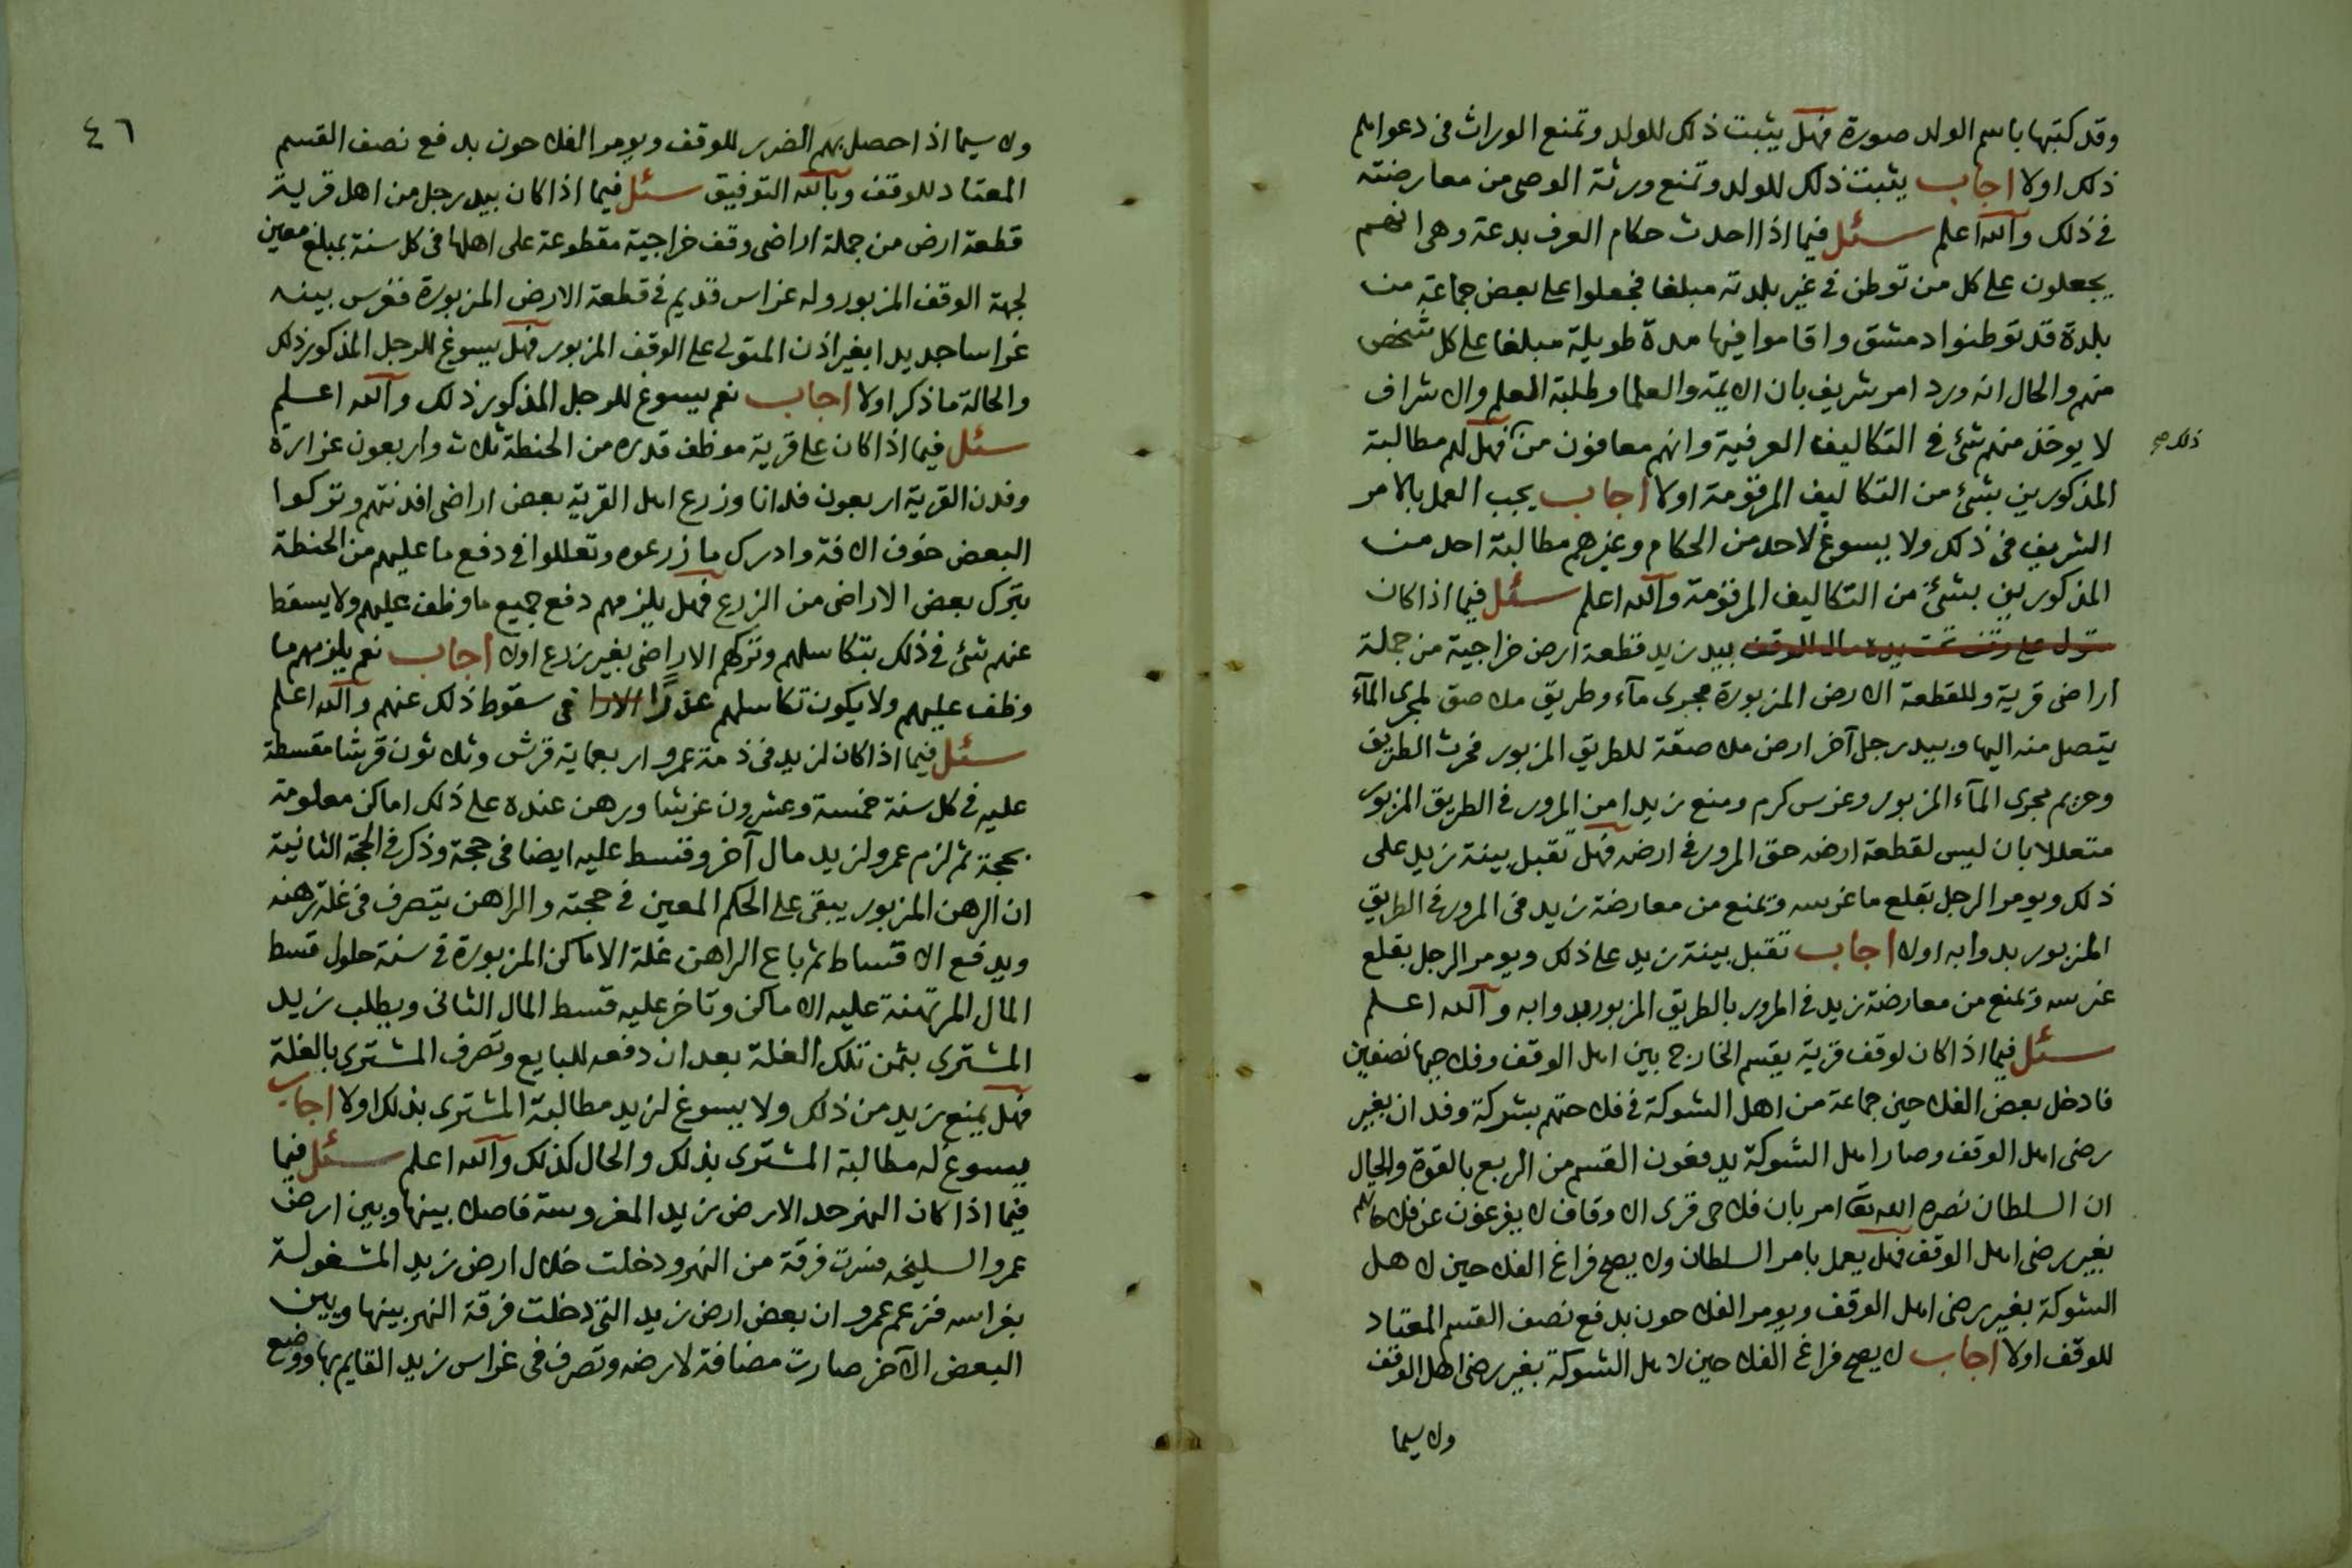 وقد كتبها باسم الولد صورة فهل يثبت ذلك للولد وتمنع الوراث في دعواهم
ذلك اولا اجاب يثبت ذلك للولد وتمنع ورثة الوصي من معارضته
في ذلك والله اعلم سئل فيما اذا احدث حكام العرف بدعة وهي انهم
يجعلون على كل من توطن في غير بلدته مبلغا فجعلوا على بعض جماعة من
بلدة قد توطنوا دمشق واقاموا فيها مدة طويلة مبلغا على كل شخص
منهم والحال انه ورد امر شريف بان الايمة والعلما وطلبة العلم والاشراف
لا يوخذ منهم شئ في التكاليف العرفية وانهم معافون من فهل لهم مطالبة
ذلك صح
المذكورين بشئ من التكاليف المرقومة اولا اجاب يجب العمل بالامر
الشريف في ذلك ولا يسوغ لاحد من الحكام وغيرهم مطالبة احد من
المذكورين بشئ من التكاليف المرقومة والله اعلم سئل فيما اذا كان
متول على وقف تحت يده مال الوقف بيد زيد قطعة ارض خراجية من جملة
اراضي قرية وللقطعة الارض المزبورة مجرى مآء وطريق ملاصق لمجرى المآء
يتصل منه اليها وبيد رجل آخر ارض ملاصقة للطريق المزبور فحرث الطريق
وحريم مجرى المآء المزبور وغرس كرم ومنع زيدا من المرور في الطريق المزبور
متعللا بان ليس لقطعة ارضه حق المرور في ارضه فهل تقبل بينة زيد على
ذلك ويومر الرجل بقلع ما غرسه وتمنع من معارضة زيد في المرور في الطريق
المزبور بدوابه اولا اجاب تقبل بينة زيد على ذلك ويومر الرجل بقلع
غرسه وتمنع من معارضة زيد في المرور بالطريق المزبور بدوابه والله اعلم
سئل فيما اذا كان لوقف قرية يقسم الخارج بين اهل الوقف وفلاحيها نصفين
فادخل بعض الفلاحين جماعة من اهل الشوكة في فلاحتهم بشركة وفدان بغير
رضى اهل الوقف وصار اهل الشوكة يدفعون القسم من الربع بالقوة والحال
ان السلطان نصره الله تعا امر بان فلاحى قرى الاوقاف لا يفرغون عن فلاحاتهم
بغير رضى اهل الوقف فهل يعمل بامر السلطان ولا يصح فراغ الفلاحين لاهل
الشوكة بغير رضى اهل الوقف ويومر الفلاحون بدفع نصف القسم المعتاد
للوقف اولا اجاب لا يصح فراغ الفلاحين لاهل الشوكة بغير رضى اهل الوقف
ولا سيما
٤٦
ولا سيما اذا حصل بهم الضرر للوقف ويومر الفلاحون بدفع نصف القسم
المعتاد للوقف وبالله التوفيق سئل فيما اذا كان بيد رجل من اهل قرية
قطعة ارض من جملة اراضي وقف خراجية مقطوعة على اهلها في كل سنة بمبلغ معين
لجهة الوقف المزبور وله غراس قديم في قطعة الارض المزبورة فغرس بينه
غراسا جديدا بغير اذن المتولى على الوقف المزبور فهل يسوغ للرجل المذكور ذلك
والحالة ما ذكر اولا اجاب نعم يسوغ للرجل المذكور ذلك والله اعلم
سئل فيما اذا كان على قرية موظف قدره من الحنطة ثلاث واربعون غرارة
وفدن القرية اربعون فدانا وزرع اهل القرية بعض اراضي افدنتهم وتركوا
البعض خوف الافة وادرك ما زرعوه وتعللوا في دفع ما عليهم من الحنطة
بترك بعض الاراضي من الزرع فهل يلزمهم دفع جميع ما وظف عليهم ولا يسقط
عنهم شئ في ذلك بتكاسلهم وتركهم الاراضي بغير زرع اولا اجاب نعم يلزمهم ما
وظف عليهم ولا يكون تكاسلهم عذرًا الارا في سقوط ذلك عنهم والله اعلم
سئل فيما اذا كان لزيد في ذمة عمرو اربعماية قرش وثلاثون قرشا مقسطة
عليه في كل سنة خمسة وعشرون غرشا ورهن عنده على ذلك اماكن معلومة
بحجة ثم لزم عمرو لزيد مال آخر وقسط عليه ايضا في حجة وذكر في الحجة الثانية
ان الرهن المزبور يبقى على الحكم المعين في حجته والراهن يتصرف في غلة رهنه
ويدفع الاقساط ثم باع الراهن غلة الاماكن المزبورة في سنة حلول قسط
المال المرتهنة عليه الاماكن وتاخر عليه قسط المال الثاني ويطلب زيد
المشترى بثمن تلك الغلة بعد ان دفعه للبايع وتصرف المشترى بالغلة
فهل يمنع زيد من ذلك ولا يسوغ لزيد مطالبة المشترى بذلك اولا اجاب
يسوغ له مطالبة المشترى بذلك والحال كذلك والله اعلم سئل فيما
فيما اذا كان النهر حد الارض زيد المغروسة فاصلا بينها وبين ارض
عمرو السليخه فسرت فرقة من النهر ودخلت خلال ارض زيد المشغولة
بغراسه فزعم عمرو ان بعض ارض زيد التي دخلت فرقة النهر بينها وبين
البعض الآخر صارت مضافة لارضه وتصرف في غراس زيد القايم بها ووضع